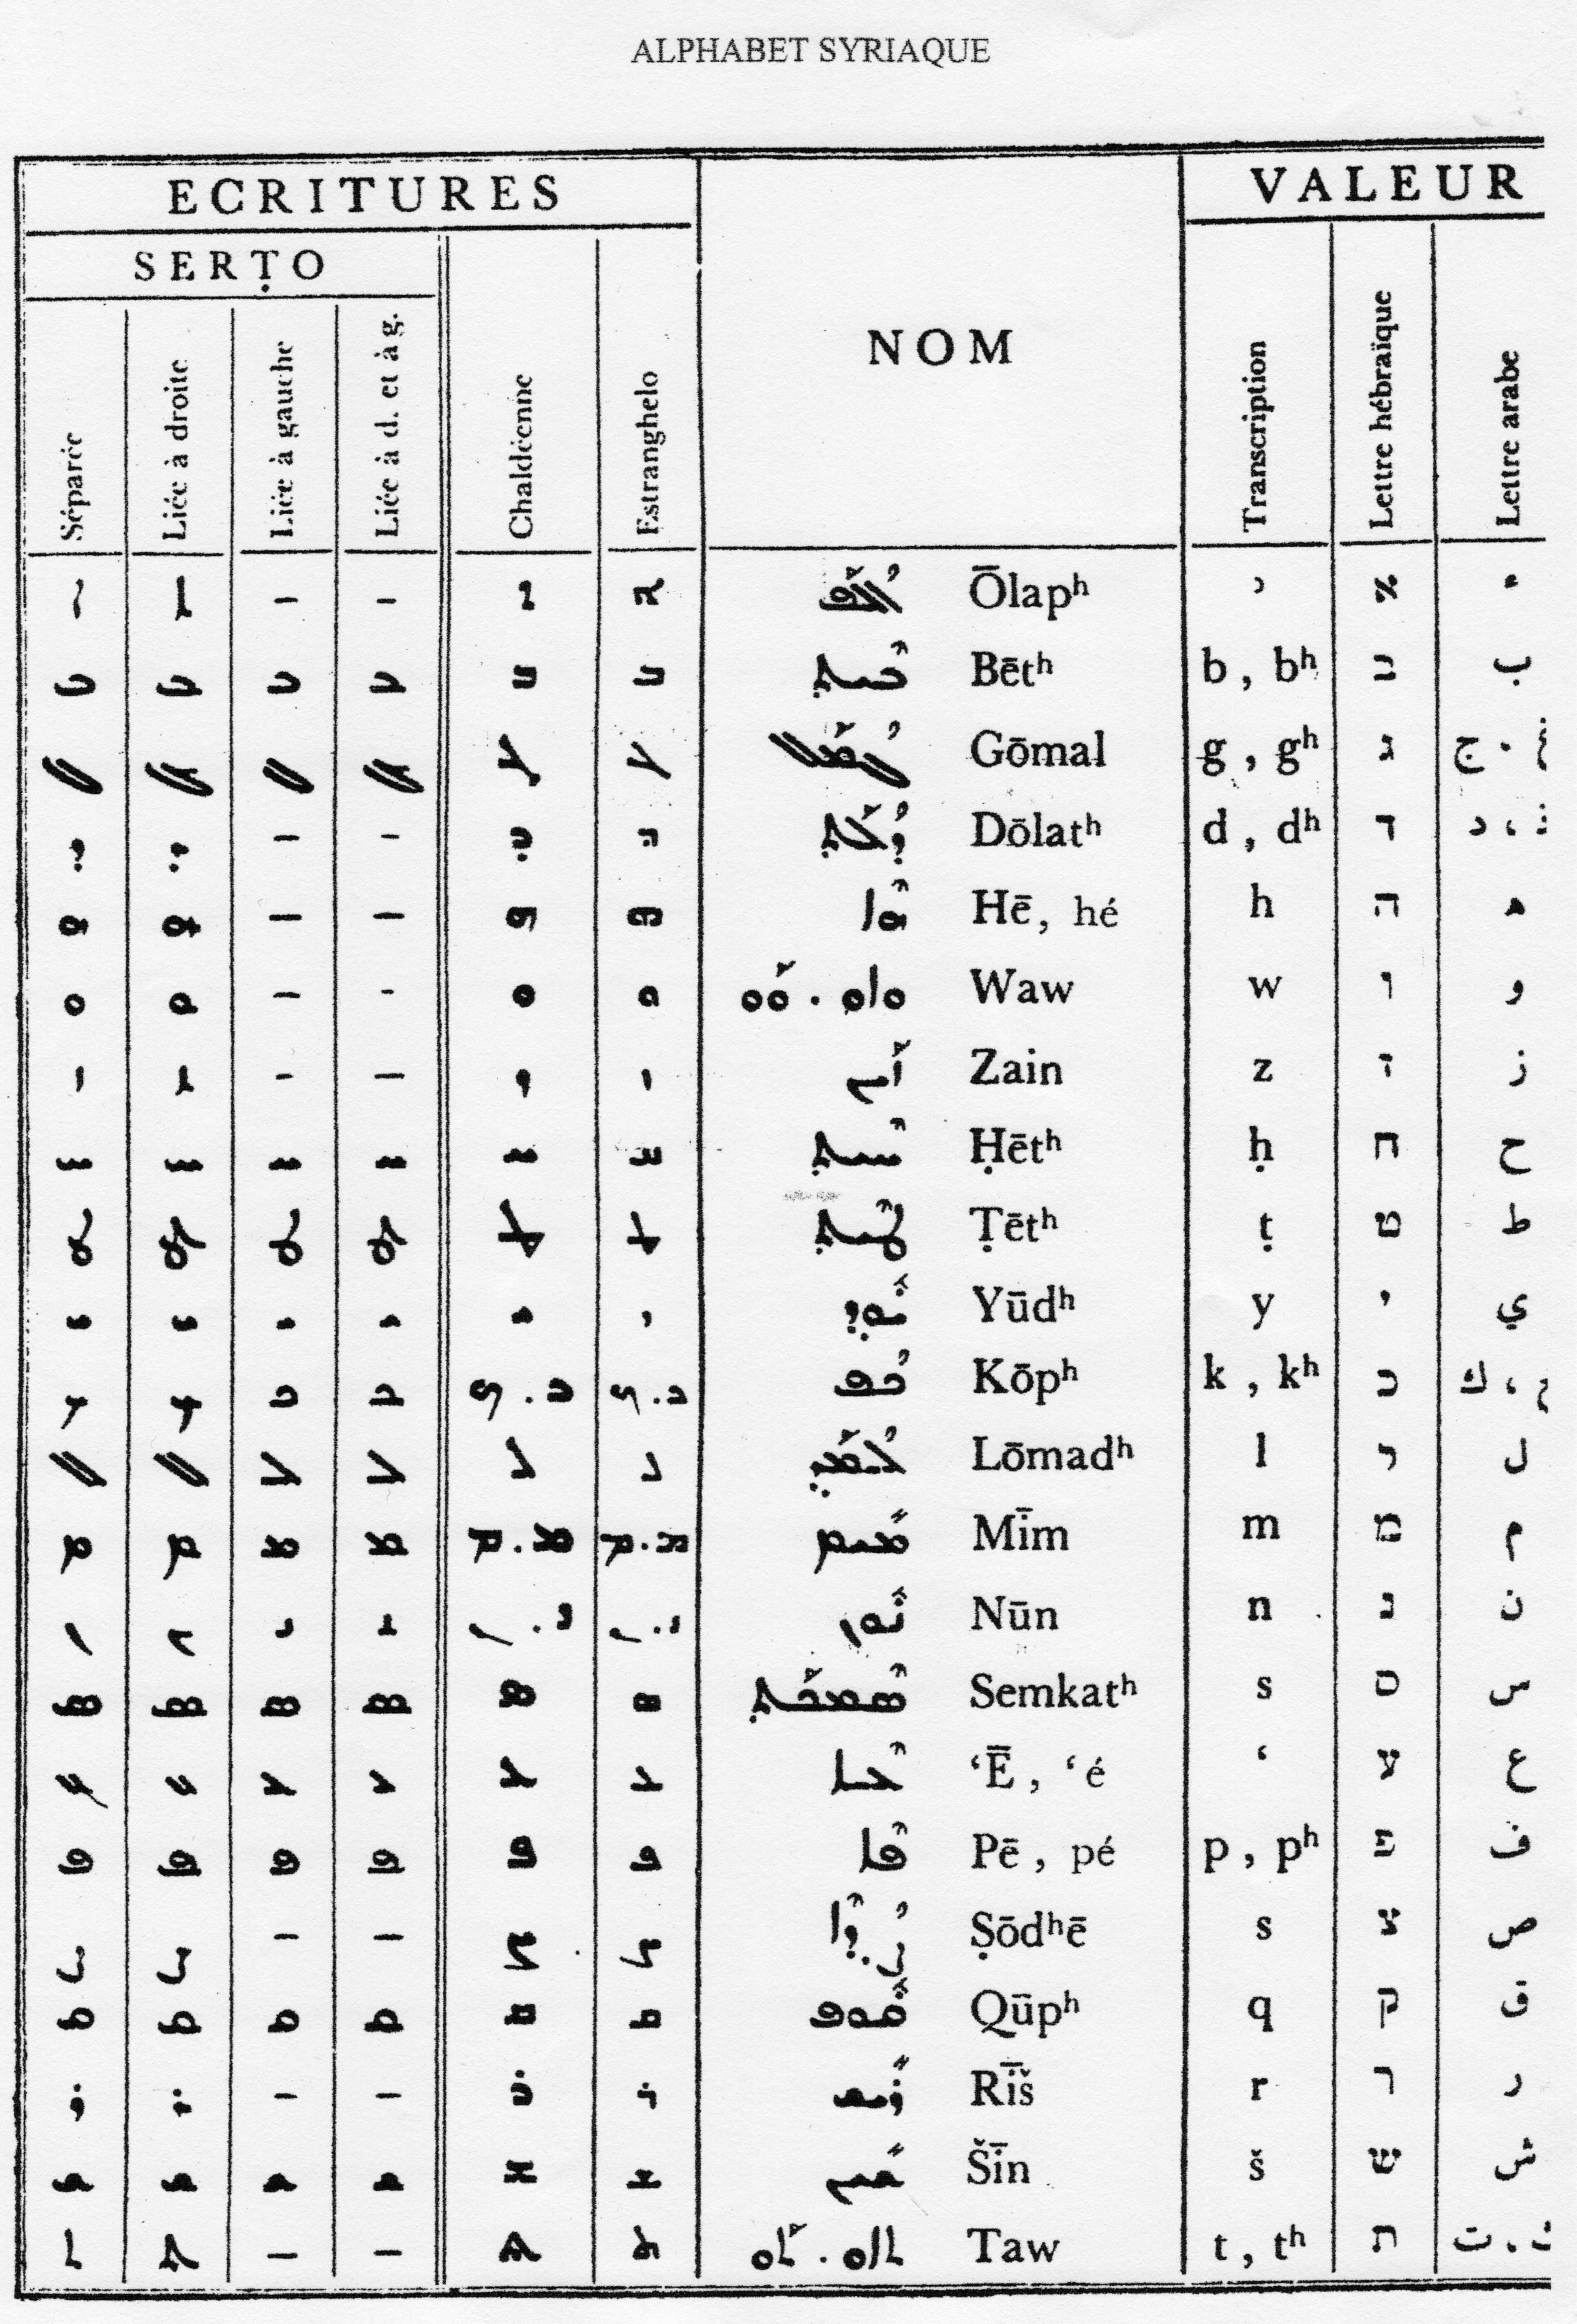 ALPHABET SYRIAQUE
ECRITURES
VALEUR
SERṬO
NOM
Séparée
Liée à droite
Liée à gauche
Liée à d. et à g.
Chaldéenne
Estranghelo
Transcription
Lettre hébraïque
Lettre arabe
ܐ ܐ – – ܐ ܐ ܐܳܠܰܦ Ōlapʰ ʾ א ء
ܒ ܒ ܒ ܒ ܒ ܒ ܒܶܝܬ݂ Bētʰ b , bʰ ב ب
ܓ ܓ ܓ ܓ ܓ ܓ ܓܳܡܰܠ Gōmal g , gʰ ג ج .
ܕ ܕ – – ܕ ܕ ܕܳܠܰܬ݂ Dōlatʰ d , dʰ ד د ،
ܗ ܗ – – ܗ ܗ ܗܶܐ Hē, hé h ה ه
ܘ ܘ – – ܘ ܘ ܘܐܘ . ܘܰܘ Waw w ו و
ܙ ܙ – – ܙ ܙ ܙܰܝܢ Zain z ז ز
ܚ ܚ ܚ ܚ ܚ ܚ ܚܶܝܬ݂ Ḥētʰ ḥ ח ح
ܛ ܛ ܛ ܛ ܛ ܛ ܛܶܝܬ݂ Ṭētʰ ṭ ט ط
ܝ ܝ ܝ ܝ ܝ ܝ ܝܽܘܕ݂ Yūdʰ y י ي
ܟ ܟ ܟ ܟ ܟ . ܟ ܟ . ܟ ܟܳܦ Kōpʰ k , kʰ כ ك ،
ܠ ܠ ܠ ܠ ܠ ܠ ܠܳܡܰܕ݂ Lōmadʰ l ל ل
ܡ ܡ ܡ ܡ ܡ . ܡ ܡ . ܡ ܡܺܝܡ Mīm m מ م
ܢ ܢ ܢ ܢ ܢ . ܢ ܢ . ܢ ܢܽܘܢ Nūn n נ ن
ܣ ܣ ܣ ܣ ܣ ܣ ܣܶܡܟܰܬ݂ Semkatʰ s ס س
ܥ ܥ ܥ ܥ ܥ ܥ ܥܶܐ ʿĒ , ʿé ʿ ע ع
ܦ ܦ ܦ ܦ ܦ ܦ ܦܶܐ Pē , pé p , pʰ פ ف
ܨ ܨ – – ܨ ܨ ܨܳܕ݂ܶܐ Ṣōdʰē s צ ص
ܩ ܩ ܩ ܩ ܩ ܩ ܩܽܘܦ Qūpʰ q ק ق
ܪ ܪ – – ܪ ܪ ܪܺܝܫ Rīš r ר ر
ܫ ܫ ܫ ܫ ܫ ܫ ܫܺܝܢ Šīn š ש ش
ܬ ܬ – – ܬ ܬ ܬܐܘ . ܬܰܘ Taw t , tʰ ת ت .